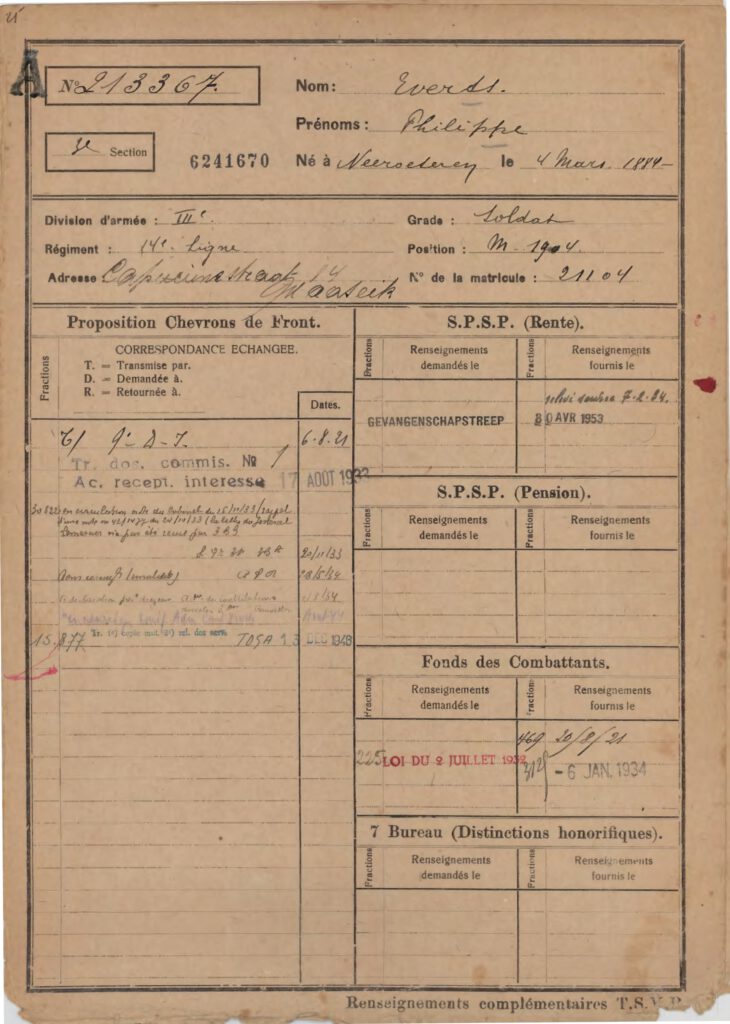 A
No 213367.
Nom: Everds.
Prénoms: Philippe
3e Section
6241670
Né à Neeroeteren le 4 Mars. 1884-
Division d'armée : IIIe.
Grade : Soldat
Régiment : 14e. Ligne
Position : M- 1904.
Adresse Capucienestraat 14
Maaseik
No de la matricule : 21104
Proposition Chevrons de Front.
Fractions
CORRESPONDANCE ECHANGEE.
T. = Transmise par.
D. = Demandée à.
R. = Retournée à.
Dates.
T/ 9e D-I. 6.8.21
Tr. doc. commis. No 1
Ac. recept. interesse 17 AOUT 1933
20/11/33
28/5/34
15.877 Tr. 1o) copie mat. 2o) rel. des serv. TOSA 13 DEC 1948
S.P.S.P. (Rente).
Fractions
Renseignements demandés le
Fractions
Renseignements fournis le
7.2.24.
GEVANGENSCHAPSTREEP
30 AVR 1953
S.P.S.P. (Pension).
Fractions
Renseignements demandés le
Fractions
Renseignements fournis le
Fonds des Combattants.
Fractions
Renseignements demandés le
Fractions
Renseignements fournis le
469 20/8/21
225 LOI DU 2 JUILLET 1932
- 6 JAN. 1934
7 Bureau (Distinctions honorifiques).
Fractions
Renseignements demandés le
Fractions
Renseignements fournis le
Renseignements complémentaires T.S.V.P.